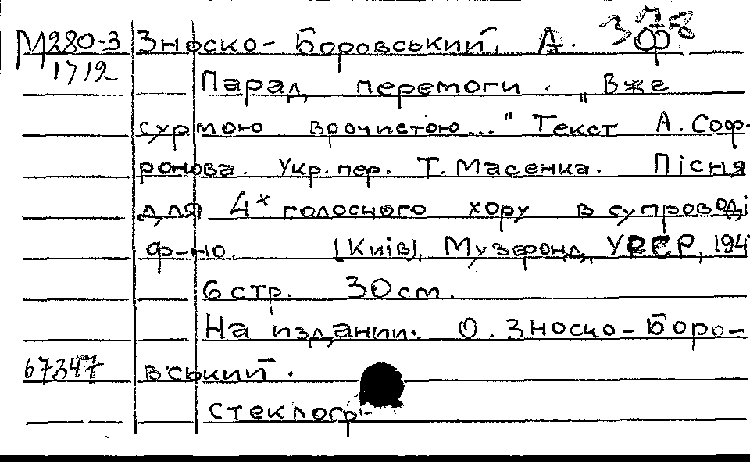 М280-3 Зноско-Боровський, А. 378
1712 Парад перемоги. „Вже
сурмою врочистою..." Текст А. Соф-
ронова. Укр. пер. Т. Масенка. Пісня
для 4х голосного хору в супроводі
ф-но. [Київ], Музфонд УРСР, 194
6 стр. 30 см.
На издании: О. Зноско-Боро-
67347 вський.
Стеклогр